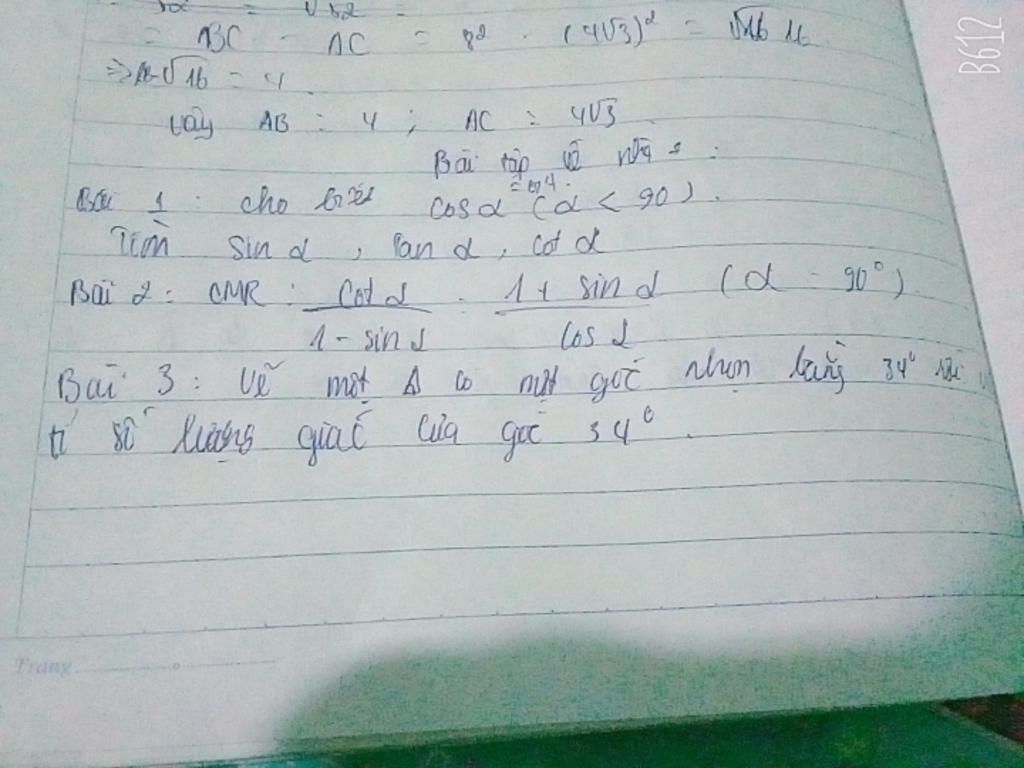 = BC - AC = 8² - (4√3)² = √16 16
⇒ AB √16 = 4
Vậy AB = 4 ; AC = 4√3
Bài tập về nhà :
Bài 1 : cho biết cosα (α < 90).
Tìm sin α , tan α , cot α
Bài 2 : CMR : cot α / 1 - sin α = 1 + sin α / cos α (α - 90°)
Bài 3 : Vẽ một Δ có một góc nhọn bằng 34°
tỉ số lượng giác của góc 34°.
Trang
B612